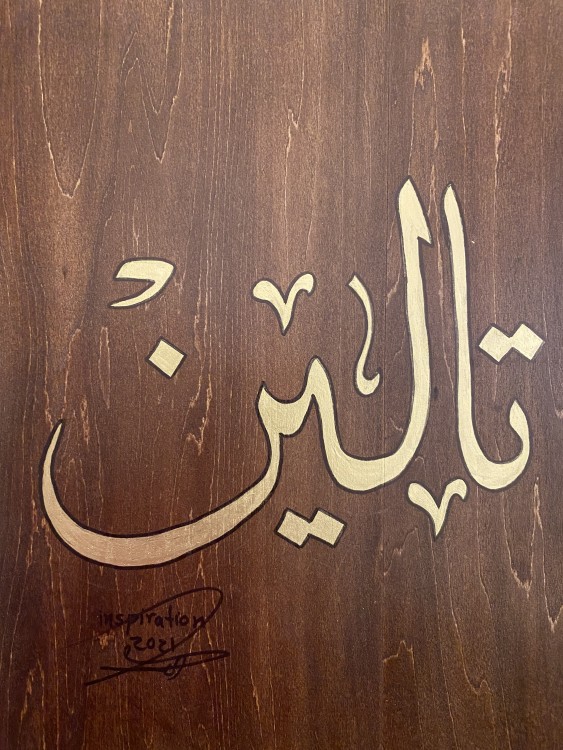 تالين
inspiration
2021